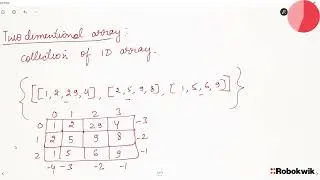 Two dimentional array:
collection of 1D array.
{ [[1, 2, 29, 4], [2, 5, 9, 8], [1, 5, 6, 9]] }
0 1 2 3
0 1 2 29 4 -3
1 2 5 9 8 -2
2 1 5 6 9 -1
-4 -3 -2 -1
Robokwik